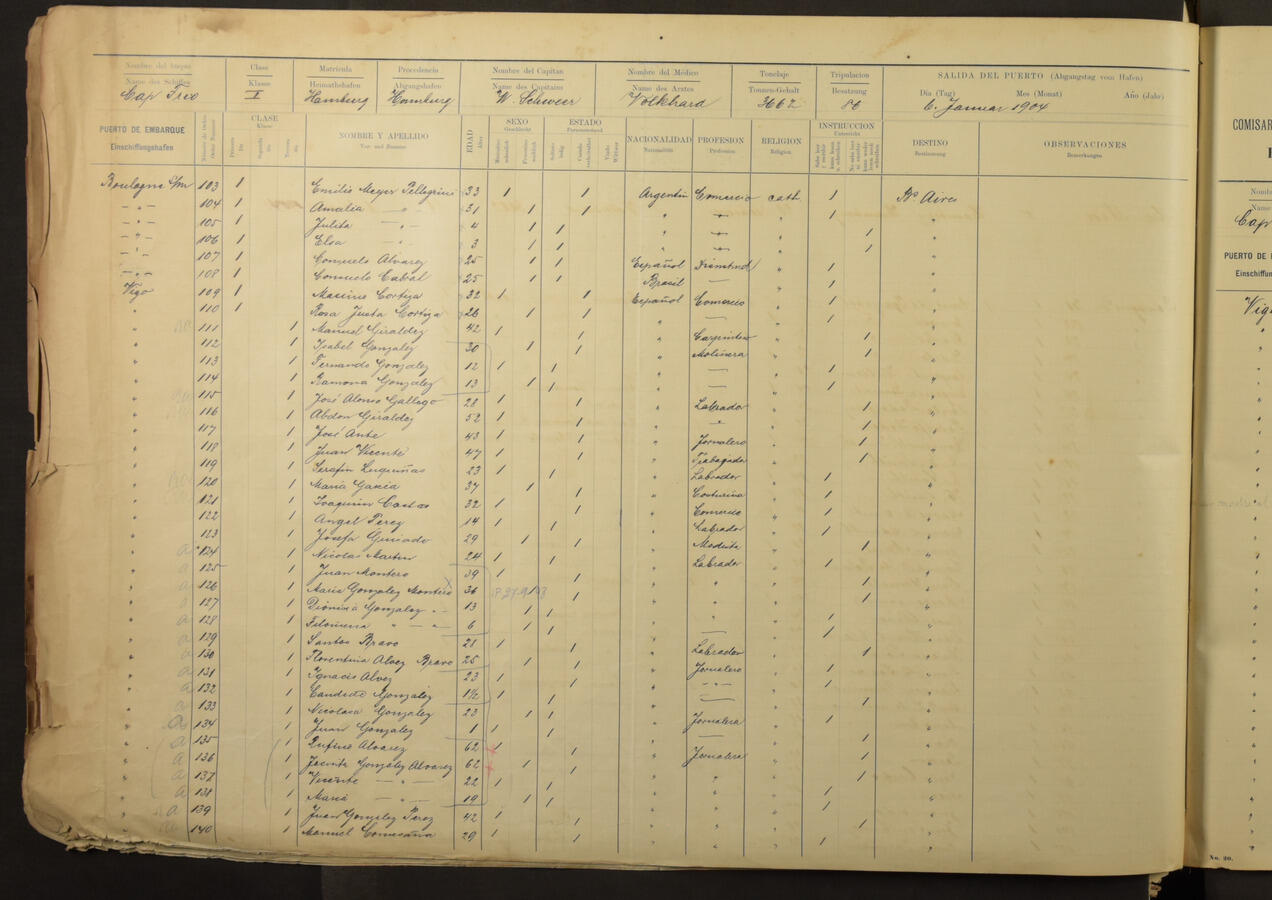 Nombre del buque Clase Matricula Procedencia Nombre del Capitan Nombre del Médico Tonelaje Tripulacion SALIDA DEL PUERTO (Abgangstag vom Hafen)
Name des Schiffes Klasse Heimathshafen Abgangshafen Name des Capitains Name des Arztes Tonnen-Gehalt Besatzung Dia (Tag) Mes (Monat) Año (Jahr)
Cap Frio I Hamburg Hamburg W. Schweer Volkhard 3662 86 6. Januar 1904
PUERTO DE EMBARQUE CLASE NOMBRE Y APELLIDO EDAD SEXO ESTADO NACIONALIDAD PROFESION RELIGION INSTRUCCION DESTINO OBSERVACIONES
Einschiffungshafen Klasse Vor- und Zuname Alter Geschlecht Personenstand Nationalität Profession Religion Unterricht Bestimmung Bemerkungen
Boulogne s/m 103 1 Emilio Meyer Pellegrini 33 1 1 Argentin Comercio cath. 1 Bs Aires
- " - 104 1 Amalia - " - 31 1 1 " - " - " 1 "
- " - 105 1 Julita - " - 4 1 1 " - " - " 1 "
- " - 106 1 Elsa - " - 3 1 1 " - " - " 1 "
- " - 107 1 Consuelo Alvarez 25 1 1 Español " 1 "
- " - 108 1 Consuelo Cabral 25 1 1 Brasil — " 1 "
Vigo 109 1 Maximo Cortiza 32 1 1 Español Comercio " 1 "
" 110 1 Rosa Justa Cortiza 26 1 1 " — " 1 "
" 111 1 Manuel Giraldez 42 1 1 " Carpintero " 1 "
" 112 1 Isabel Gonzalez 30 1 1 " Molinera " 1 "
" 113 1 Fernando Gonzalez 12 1 1 " — " 1 "
" 114 1 Ramona Gonzalez 13 1 1 " — " 1 "
" 115 1 José Alonso Gallego 28 1 1 " Labrador " 1 "
" 116 1 Abdon Giraldez 52 1 1 " " " 1 "
" 117 1 José Ante 43 1 1 " Jornalero " 1 "
" 118 1 Juan Vicente 47 1 1 " Trabajador " 1 "
" 119 1 Serafin 23 1 1 " Labrador " 1 "
" 120 1 Maria Garcia 37 1 1 " Costurera " 1 "
" 121 1 Joaquin 32 1 1 " Comercio " 1 "
" 122 1 Angel Perez 14 1 1 " Labrador " 1 "
" 123 1 Josefa 29 1 1 " Modista " 1 "
" a 124 1 Nicolas Martin 24 1 1 " Labrador " 1 "
" a 125 1 Juan Montero 39 1 1 " " " 1 "
" a 126 1 Maria Gonzalez Montero 36 1 1 " " " 1 "
" a 127 1 Dionisia Gonzalez - " - 13 1 1 " " " 1 "
" a 128 1 Filomena " - " - 6 1 1 " — " 1 "
" a 129 1 Santos Bravo 28 1 1 " Labrador " 1 "
" a 130 1 Florentina Alvez Bravo 25 1 1 " Jornalero " 1 "
" a 131 1 Ignacio Alvez 23 1 1 " - " - " 1 "
" a 132 1 Candido Gonzalez 1 1 " — " 1 "
" a 133 1 Nicolasa Gonzalez 23 1 1 " Jornalera " 1 "
" a 134 1 Juan Gonzalez 1 1 1 " — " 1 "
" a 135 1 Rufino Alvarez 62 1 1 " Jornalera " 1 "
" a 136 1 Jacinta Gonzalez Alvarez 62 1 1 " " " 1 "
" a 137 1 Vicente — " — 22 1 1 " " " 1 "
" a 138 1 Maria — " — 19 1 1 " " " 1 "
" a 139 1 Juan Gonzalez Perez 42 1 1 " " " 1 "
" a 140 1 Manuel Comesaña 29 1 1 " " " 1 "
COMISAR
Cap
PUERTO DE
Einschiffun
Vig
No. 20.